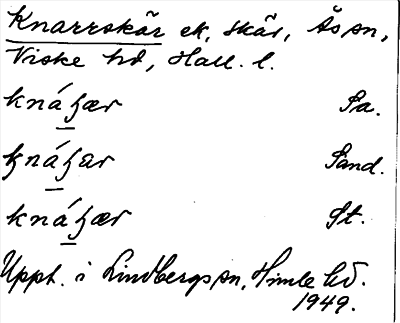 Knarrskär ek, skär, Ås sn,
Viske hd, Hall. l.
knáꜧær Sa.
knáꜧær Sand.
knáꜧær St.
Uppt. i Lindbergs sn, Himle hd.
1949.